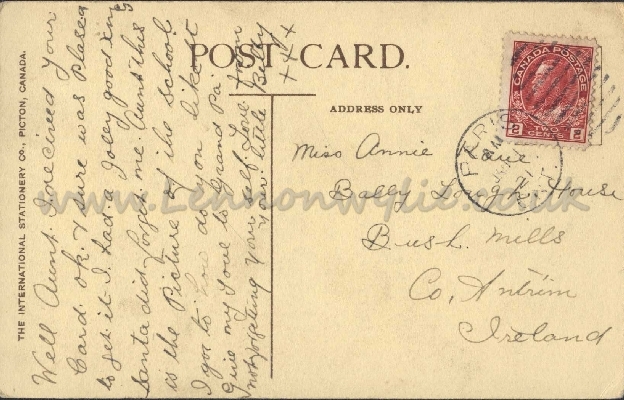 POST CARD.
ADDRESS ONLY
THE INTERNATIONAL STATIONERY CO., PICTON, CANADA.
CANADA POSTAGE
2 TWO CENTS 2
PARIS
Well Aunt I received your
Card. ok. & sure was Plased
to get it I had a Jolley good xmg
Santa did forget me Aunt this
is the Picture of the school
I go to how do you like it
Give my Love to Grand Pa.
not forgeting your self. Love
your little
from
Billy
++++
Miss Annie
Bally House
Bush Mills
Co, Antrim
Ireland
www.Lennonwylie.co.uk